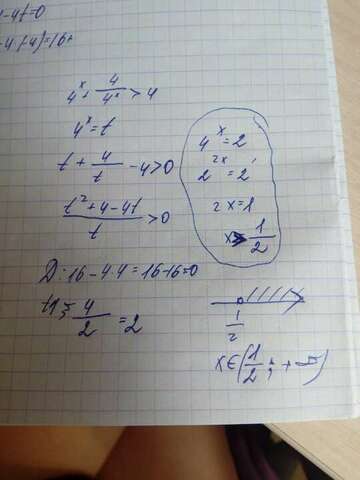 -4t=0
4^x + 4/4^x > 4
4^x = t
t + 4/t - 4 > 0
(t² + 4 - 4t)/t > 0
D: 16 - 4·4 = 16 - 16 = 0
t1 = 4/2 = 2
4^x = 2
2^2x = 2^1
2x = 1
x > 1/2
1/2
x ∈ (1/2; +∞)